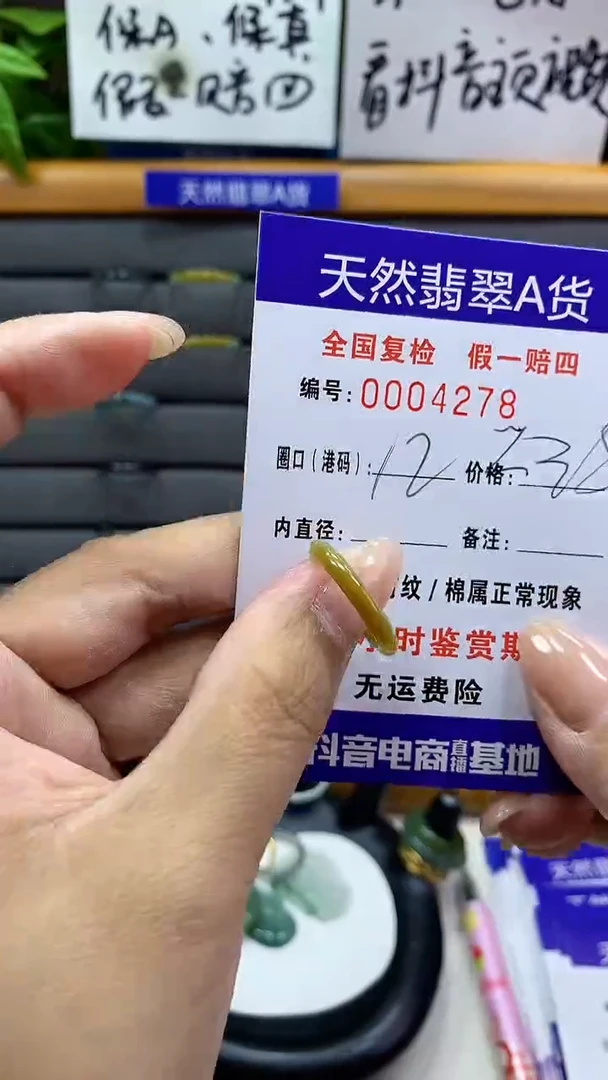 保A、保真
假一赔四
看抖音主页视频
天然翡翠A货
天然翡翠A货
全国复检 假一赔四
编号:0004278
圈口(港码):12 价格:238
内直径: 备注:
纹/棉属正常现象
时鉴赏期
无运费险
抖音电商直播基地